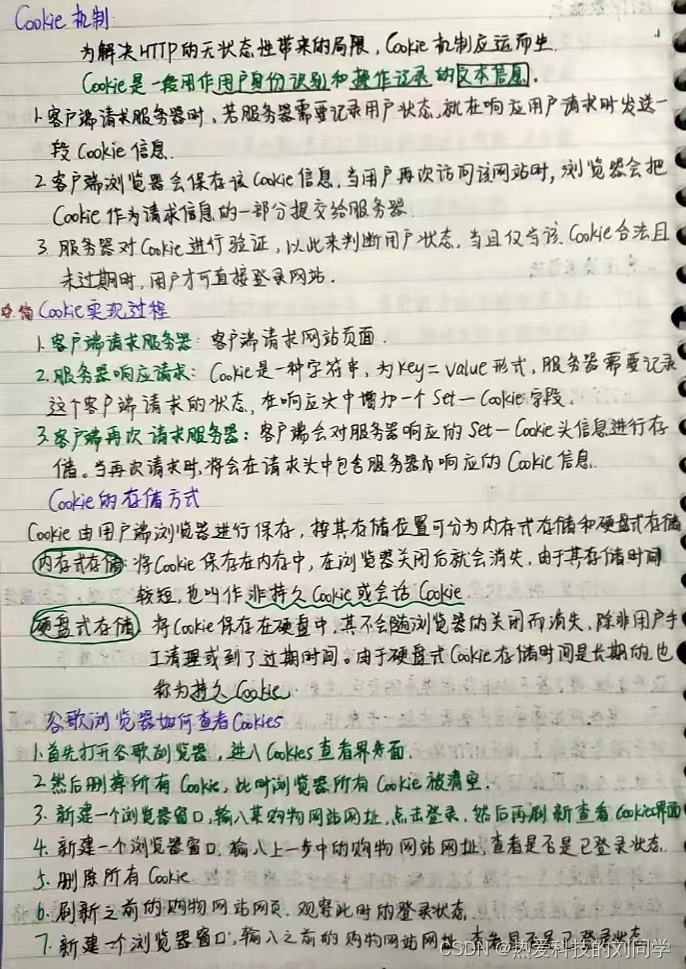 Cookie机制
为解决HTTP的无状态性带来的局限，Cookie机制应运而生.
Cookie是一般用作用户身份识别和操作记录的文本信息.
1.客户端请求服务器时、若服务器需要记录用户状态,就在响应用户请求时发送一
段Cookie信息.
2.客户端浏览器会保存该Cookie信息,当用户再次访问该网站时,浏览器会把
Cookie作为请求信息的一部分提交给服务器.
3.服务器对Cookie进行验证，以此来判断用户状态,当且仅当该Cookie合法且
未过期时,用户才可直接登录网站.
Cookie实现过程
1.客户端请求服务器:客户端请求网站页面.
2.服务器响应请求:Cookie是一种字符串，为key=value形式,服务器需要记录
这个客户端请求的状态,在响应头中增加一个Set-Cookie字段.
3.客户端再次请求服务器:客户端会对服务器响应的Set-Cookie头信息进行存
储。当再次请求时,将会在请求头中包含服务器响应的Cookie信息.
Cookie的存储方式
Cookie由用户端浏览器进行保存，按其存储位置可分为内存式存储和硬盘式存储
内存式存储:将Cookie保存在内存中,在浏览器关闭后就会消失,由于其存储时间
较短,也叫作非持久Cookie或会话Cookie
硬盘式存储 将Cookie保存在硬盘中,其不会随浏览器的关闭而消失,除非用户手
工清理或到了过期时间。由于硬盘式Cookie存储时间是长期的,也
称为持久Cookie.
谷歌浏览器如何查看Cookies
1.首先打开谷歌浏览器,进入Cookies查看界面.
2.然后删掉所有Cookie,此时浏览器所有Cookie被清空.
3.新建一个浏览器窗口,输入某购物网站网址,点击登录,然后再刷新查看Cookies界面
4.新建一个浏览器窗口,输入上一步中的购物网站网址,查看是否是已登录状态.
5.删除所有Cookie
6.刷新之前的购物网站网页,观察此时的登录状态.
7.新建一个浏览器窗口,输入之前的购物网站网址,查看是否是已登录状态
CSDN @热爱科技的刘同学